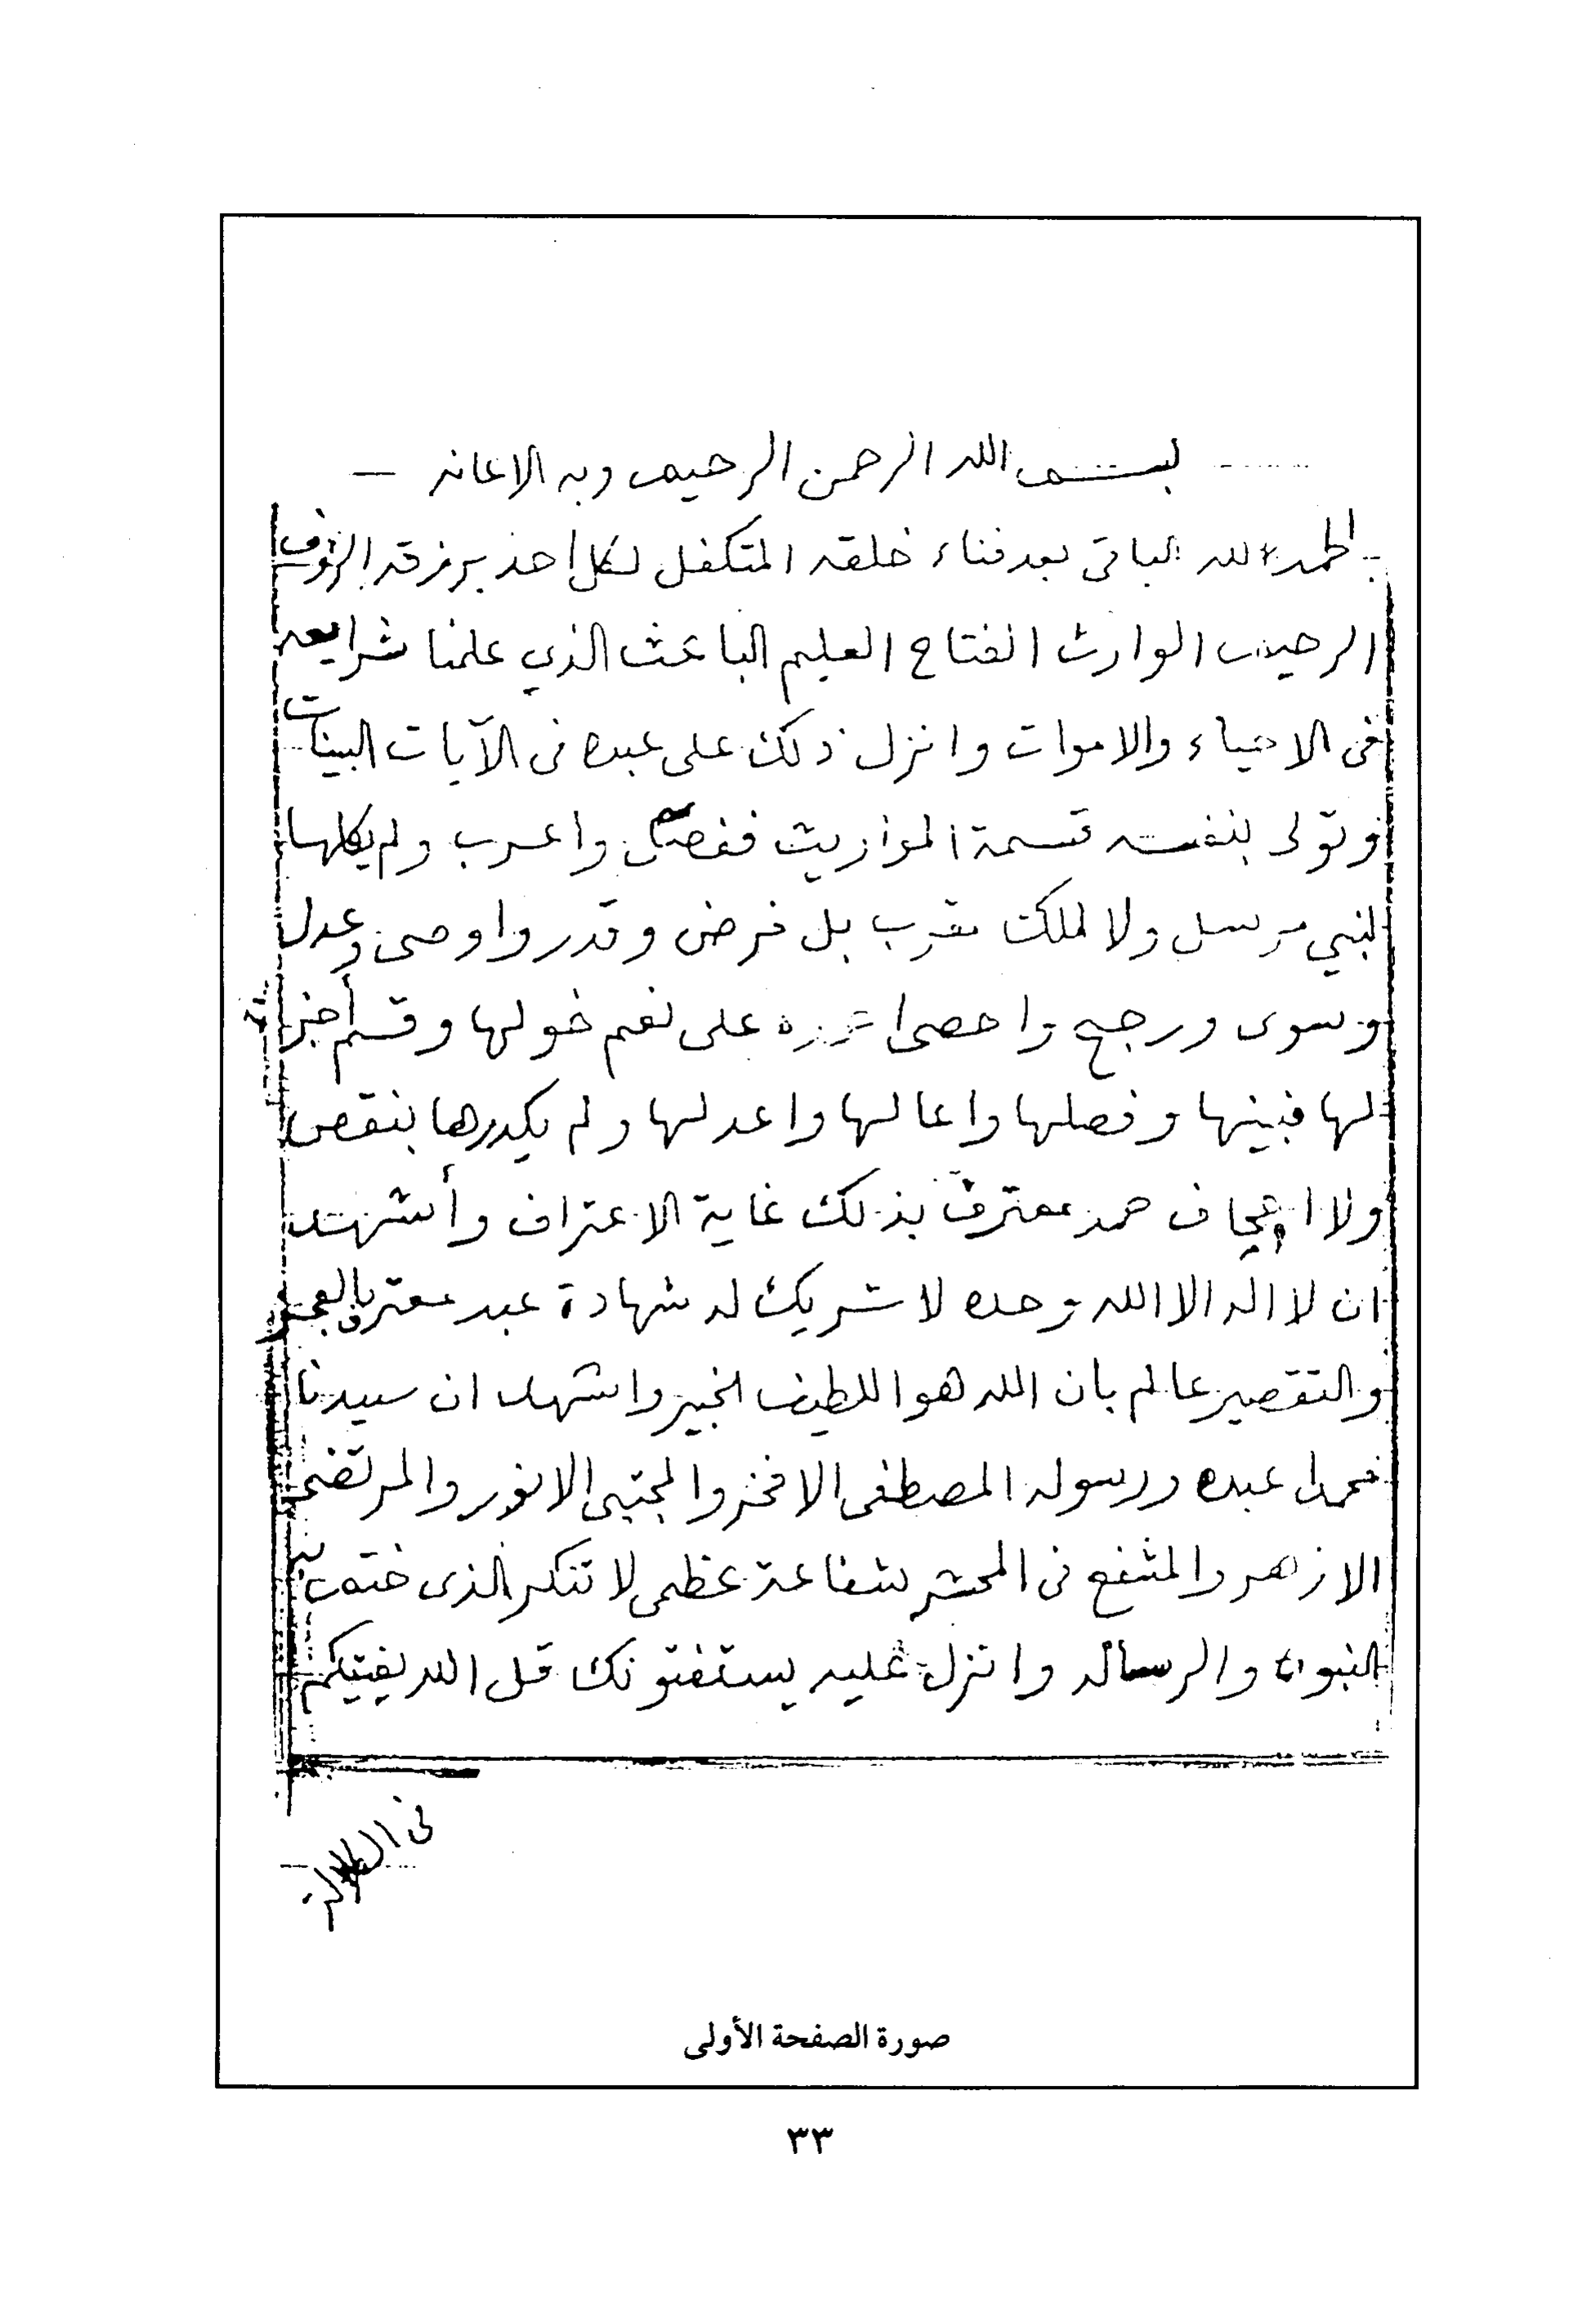 بسم الله الرحمن الرحيم وبه الاعانه
الحمد لله الباقى بعد فناء خلقه المتكفل لكل احد برزقه الرؤف
الرحيم الوارث الفتاح العليم الباعث الذي علمنا شرايعه
فى الاحياء والاموات وانزل ذلك على عبده فى الآيات البينات
وتولى بنفسه قسمة المواريث ففصل واعرب ولم يكلها
لنبي مرسل ولا لملك مقرب بل فرض وقدر واوصى وعدل
وسوى ورجح واحصى على نعم خولها وقسم أجز
لها فبينها وفصلها واعالها واعدلها ولم يكدرها بنقص
ولا اجحاف حمد معترف بذلك غاية الاعتراف وأشهد
ان لا اله الا الله وحده لا شريك له شهادة عبد معترف بالعجز
والتقصير عالم بان الله هو اللطيف الخبير واشهد ان سيدنا
محمدا عبده ورسوله المصطفى الافخر والمجتبى الانور والمرتضى
الازهر والمشفع فى المحشر بشفاعة عظمى لا تنكر الذى ختمت به
النبوة والرساله وانزل عليه يستفتونك قل الله يفتيكم
فى الكلالة
صورة الصفحة الأولى
٣٣